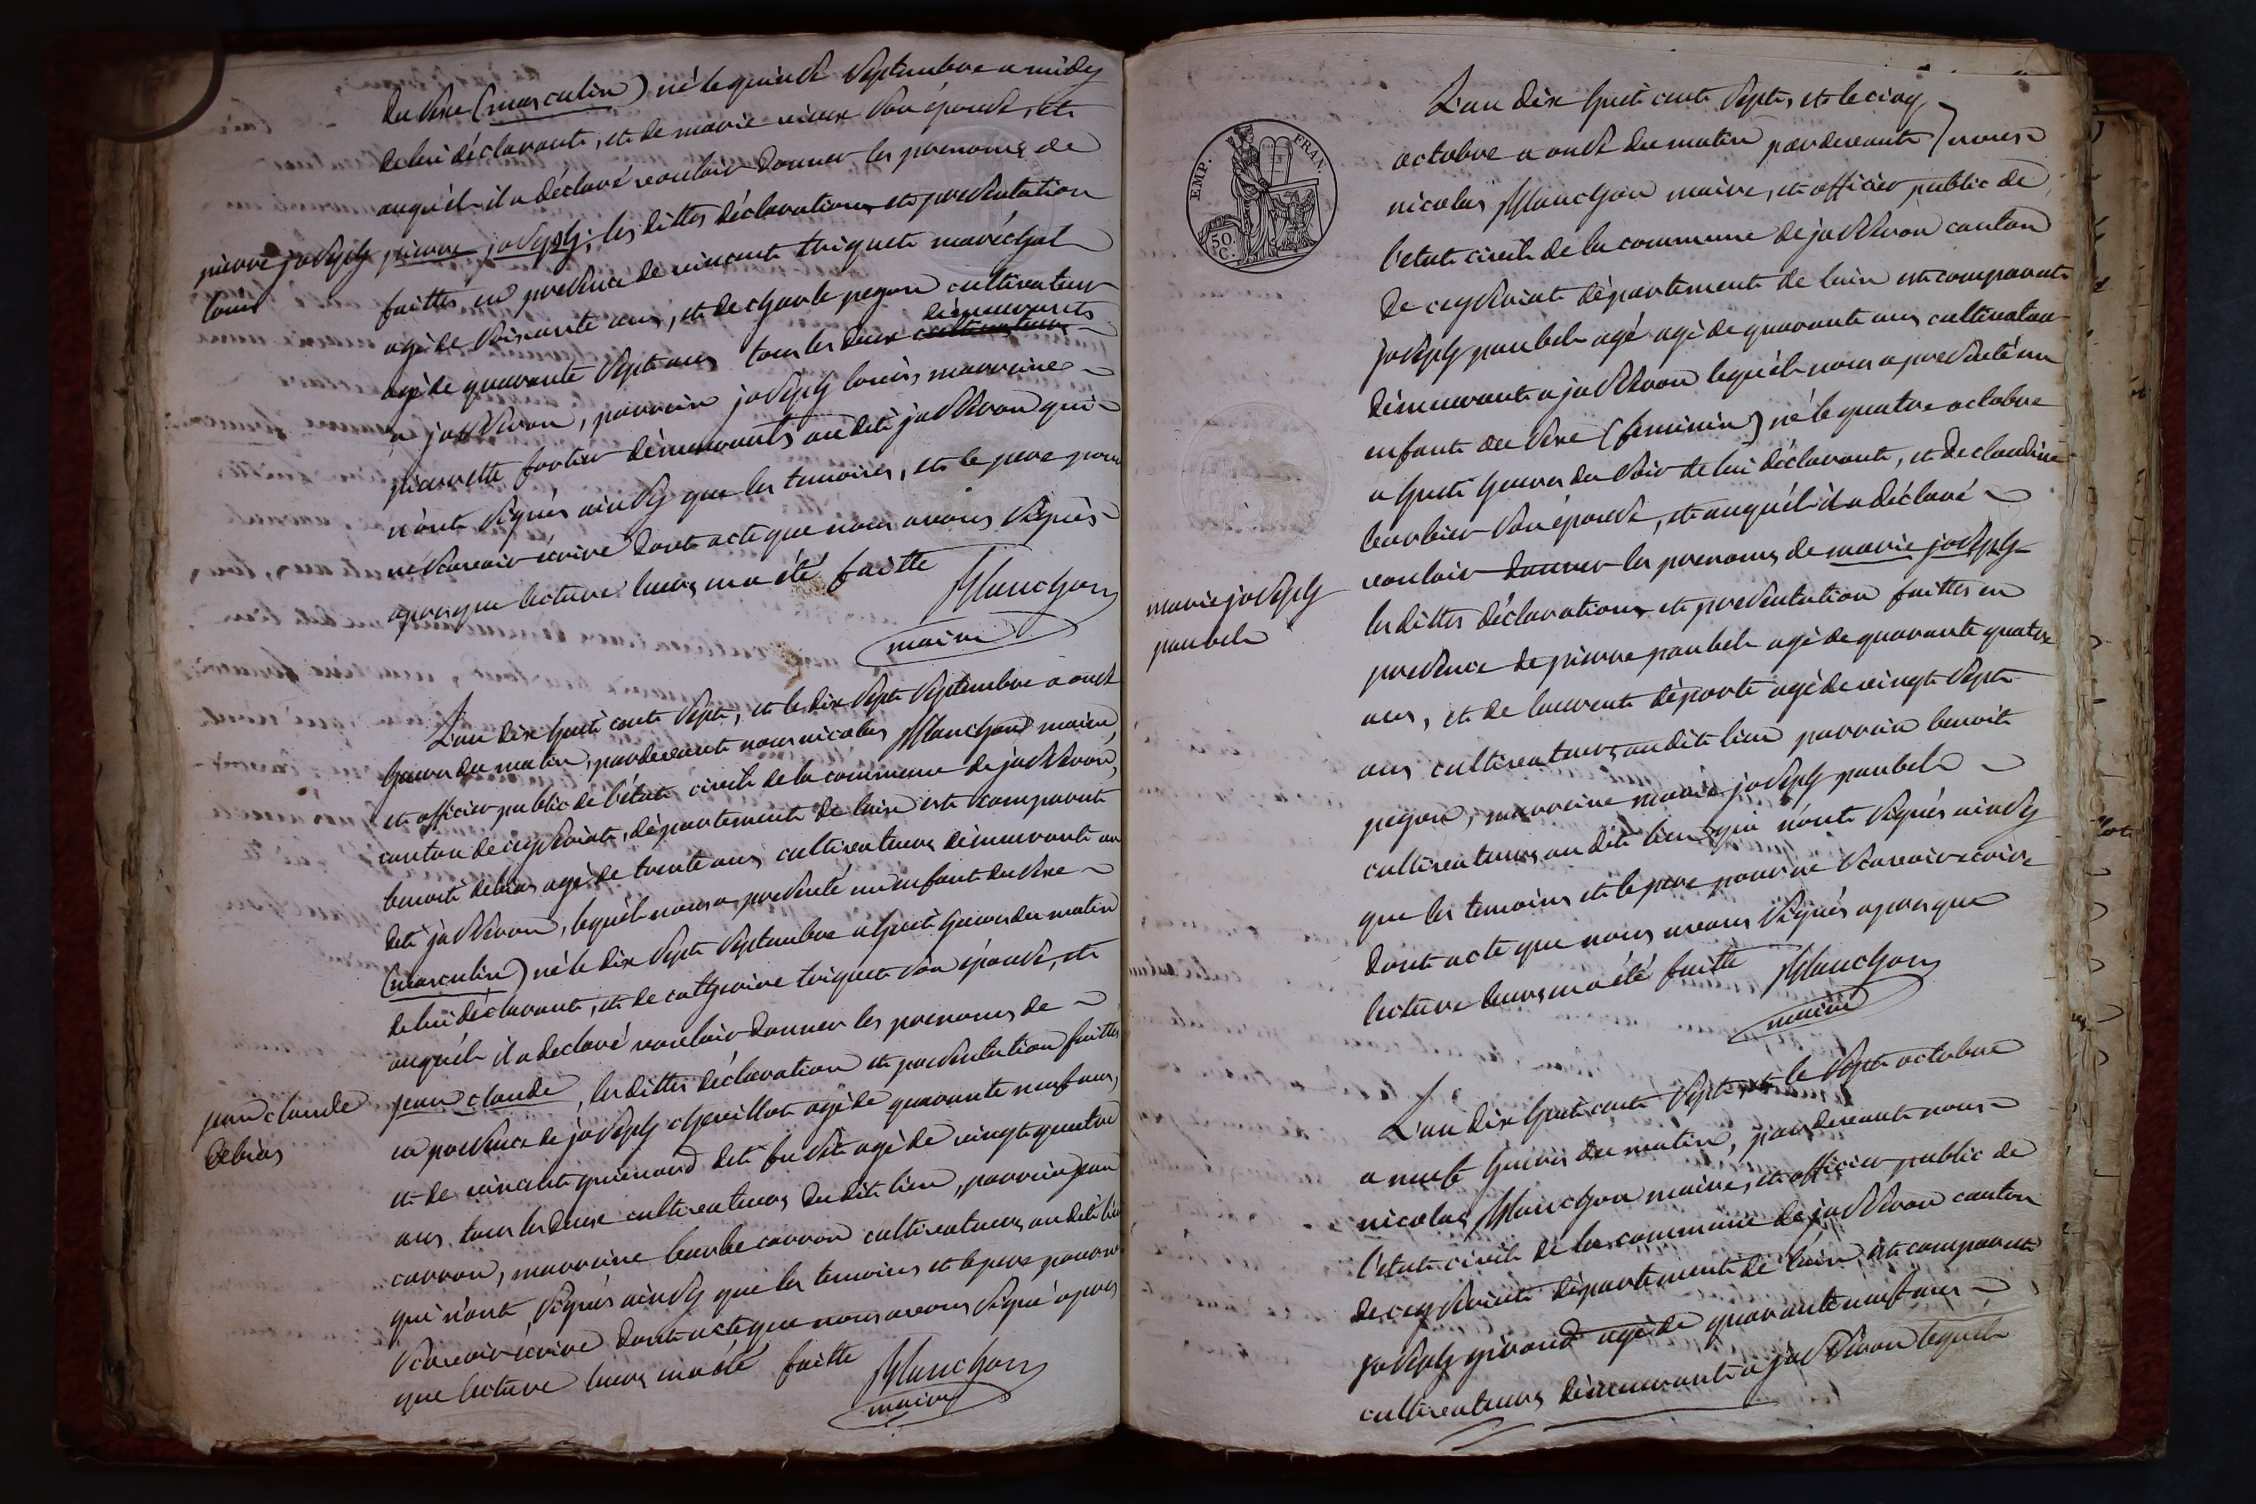 du sexe (masculin) né le quinze septembre a midy
de lui déclarant, et de marie vieux son épouse, et
auquél il a déclaré vouloir donner les prenoms de
pierre joseph; les dittes déclarations et presentation
pierre joseph
louis
faittes en presence de vincent triquet maréchal
agé de soixante ans, et de charle pegon cultivateur
agé de quarante sept ans tous les deux cultivateurs demeurants
a jasseron, parrain joseph louis, marraine
pierrette fortier démeurants audit jasseron qui
n'ont signés ainsy que les temoins, et le pere pour
ne scavoir écrire dont acte que nous avons signés
apres que lecture leurs en a été faitte
Manchon
maire
L'an dix huit cent sept, et le dix sept septembre a onze
heures du matin, pardevant nous nicolas Manchon maire,
et officier public de l'état civil de la commune de jasseron,
canton de ceyzeriat, département de l'ain est comparut
benoit debias agé de trente ans cultivateurs démeurant au
dit jasseron, lequél nous a presenté un enfant du sexe
(masculin) né le dix sept septembre a huit heures du matin
de lui déclarant, et de catherine triquet son épouse, et
auquél il a declaré vouloir donner les prenoms de
jean claude, les dittes déclaration et presentation faittes
jean claude
debias
en presence de joseph chevillot agé de quarante neuf ans,
et de vincent grienard dit agé de vingt quatre
ans tous les deux cultivateurs dudit lieu, parrain jean
carron, marraine barbe carron cultivateurs audit lieu
qui n'ont signés ainsy que les temoins et le pere pour ne
scavoir écrire dont acte que nous avons signé apres
que lecture leurs en a été faitte
Manchon
maire
L'an dix huit cent sept, et le cinq
octobre a onze du matin pardevant nous
nicolas Manchon maire, et officier public de
l'etat civil de la commune de jasseron canton
de ceyzeriat département de l'ain est comparut
joseph paubel agé agé de quarante ans cultivateur
démeurant a jasseron lequél nous a presenté un
enfant du sexe (feminin) né le quatre octobre
a huit heures du soir de lui déclarant, et de claudine
barbier son épouse, et auquél il a déclaré
vouloir donner les prenoms de marie joseph
marie joseph
paubel
les dittes déclarations et presentation faittes en
presence de pierre paubel agé de quarante quatre
ans, et de laurent déporte agé de vingt sept
ans cultivateurs audit lieu parrain benoit
pegon, marraine marie joseph paubel
cultivateurs audit lieu qui n'ont signés ainsy
que les temoins et le pere pour ne scavoir ecrire
dont acte que nous avons signés apres que
lecture leurs en a été faitte
Manchon
maire
L'an dix huit cent sept, et le sept octobre
a neuf heures du matin, pardevant nous
nicolas Manchon maire, et officier public de
l'etat civil de la commune de jasseron canton
de ceyzeriat département de l'ain est comparut
joseph giraud agé de quarante neuf ans
cultivateurs démeurant a jasseron lequél
EMP. FRAN.
50.
C.